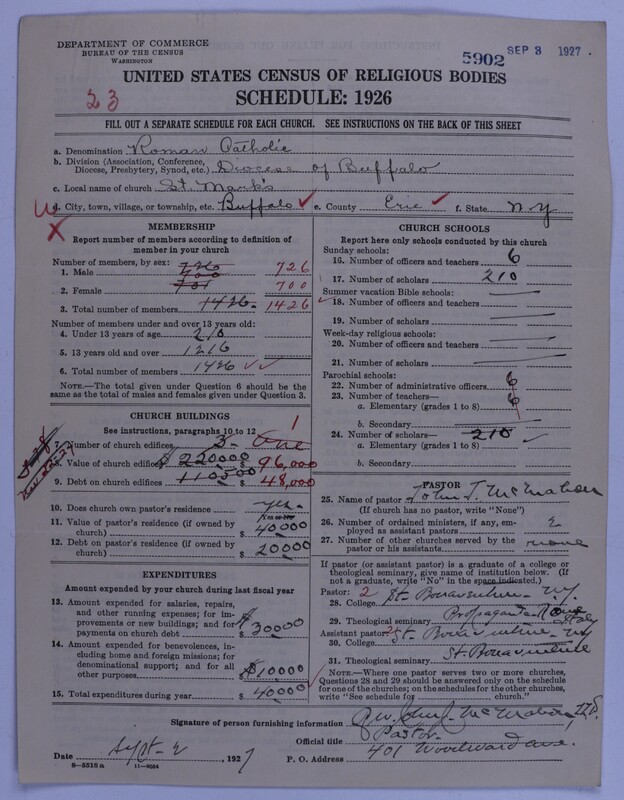 DEPARTMENT OF COMMERCE
BUREAU OF THE CENSUS
WASHINGTON
5902 SEP 3 1927
UNITED STATES CENSUS OF RELIGIOUS BODIES
23
SCHEDULE: 1926
FILL OUT A SEPARATE SCHEDULE FOR EACH CHURCH. SEE INSTRUCTIONS ON THE BACK OF THIS SHEET
a. Denomination Roman Catholic
b. Division (Association, Conference, Diocese, Presbytery, Synod, etc.) Diocese of Buffalo
c. Local name of church St. Mark's
d. City, town, village, or township, etc. Buffalo ✓ e. County Erie ✓ f. State N.Y
X
MEMBERSHIP
Report number of members according to definition of
member in your church
Number of members, by sex:
1. Male 726 726
2. Female 700 701 700
3. Total number of members 1426 1426
Number of members under and over 13 years old:
4. Under 13 years of age 210
5. 13 years old and over 1216
6. Total number of members 1426 ✓✓
NOTE.—The total given under Question 6 should be
same as the total of males and females given under Question 3.
CHURCH BUILDINGS
See instructions, paragraphs 10 to 12
7. Number of church edifices 3 One 1
8. Value of church edifices $ 220000 $ 96,000
9. Debt on church edifices 110500 $ 48,000
10. Does church own pastor's residence yes
11. Value of pastor's residence (if owned by
church) $ 40000
12. Debt on pastor's residence (if owned by
church) $ 20000
EXPENDITURES
Amount expended by your church during last fiscal year
13. Amount expended for salaries, repairs,
and other running expenses; for im-
provements or new buildings; and for
payments on church debt $ 30000
14. Amount expended for benevolences, in-
cluding home and foreign missions; for
denominational support; and for all
other purposes $ 10000
15. Total expenditures during year $ 40000
CHURCH SCHOOLS
Report here only schools conducted by this church
Sunday schools:
16. Number of officers and teachers 6
17. Number of scholars 210
Summer vacation Bible schools:
18. Number of officers and teachers
19. Number of scholars
Week-day religious schools:
20. Number of officers and teachers
21. Number of scholars
Parochial schools:
22. Number of administrative officers 6
23. Number of teachers—
a. Elementary (grades 1 to 8) 6
b. Secondary
24. Number of scholars— 210
a. Elementary (grades 1 to 8) ✓
b. Secondary
PASTOR
25. Name of pastor John J. McMahon
(If church has no pastor, write "None")
26. Number of ordained ministers, if any, em-
ployed as assistant pastors 2
27. Number of other churches served by the
pastor or his assistants none
If pastor (or assistant pastor) is a graduate of a college or
theological seminary, give name of institution below. (If
not a graduate, write "No" in the space indicated.)
Pastor: 2
28. College St. Bonaventure - N.Y.
29. Theological seminary Propaganda Rome Italy
Assistant pastor: 2
30. College St. Bonaventure - NY
31. Theological seminary St. Bonaventure
NOTE.—Where one pastor serves two or more churches,
Questions 28 and 29 should be answered only on the schedule
for one of the churches; on the schedules for the other churches,
write "See schedule for church."
Signature of person furnishing information John J. McMahon,
Official title Pastor
Date Sept - 2, 1927 P. O. Address 401 Woodward ave.
8-5518a 11-9034